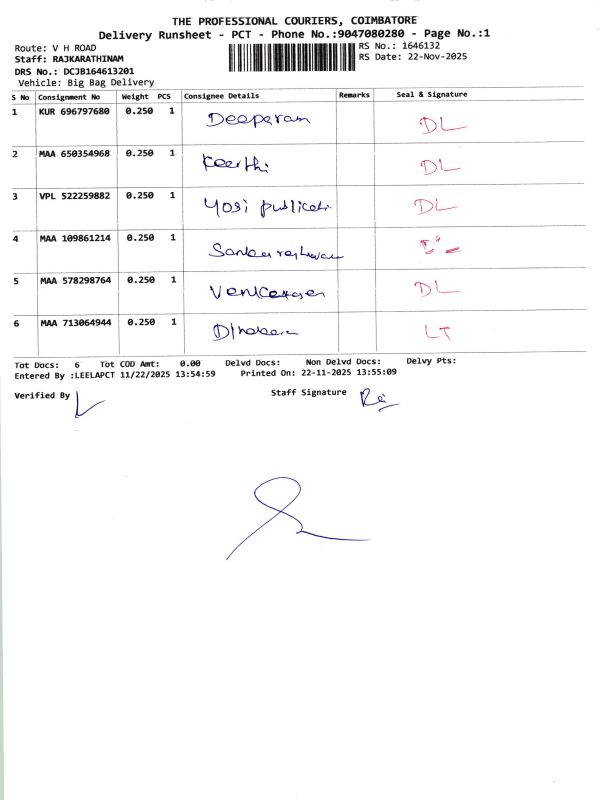 THE PROFESSIONAL COURIERS, COIMBATORE
Delivery Runsheet - PCT - Phone No.:9047080280 - Page No.:1
Route: V H ROAD
RS No.: 1646132
Staff: RAJKARATHINAM
RS Date: 22-Nov-2025
DRS No.: DCJB164613201
Vehicle: Big Bag Delivery
S No Consignment No Weight PCS Consignee Details Remarks Seal & Signature
1 KUR 696797680 0.250 1 Deeparam DL
2 MAA 650354968 0.250 1 Keerthi DL
3 VPL 522259882 0.250 1 Yosi DL
4 MAA 109861214 0.250 1
5 MAA 578298764 0.250 1 DL
6 MAA 713064944 0.250 1 LT
Tot Docs: 6 Tot COD Amt: 0.00 Delvd Docs: Non Delvd Docs: Delvy Pts:
Entered By :LEELAPCT 11/22/2025 13:54:59 Printed On: 22-11-2025 13:55:09
Verified By Staff Signature